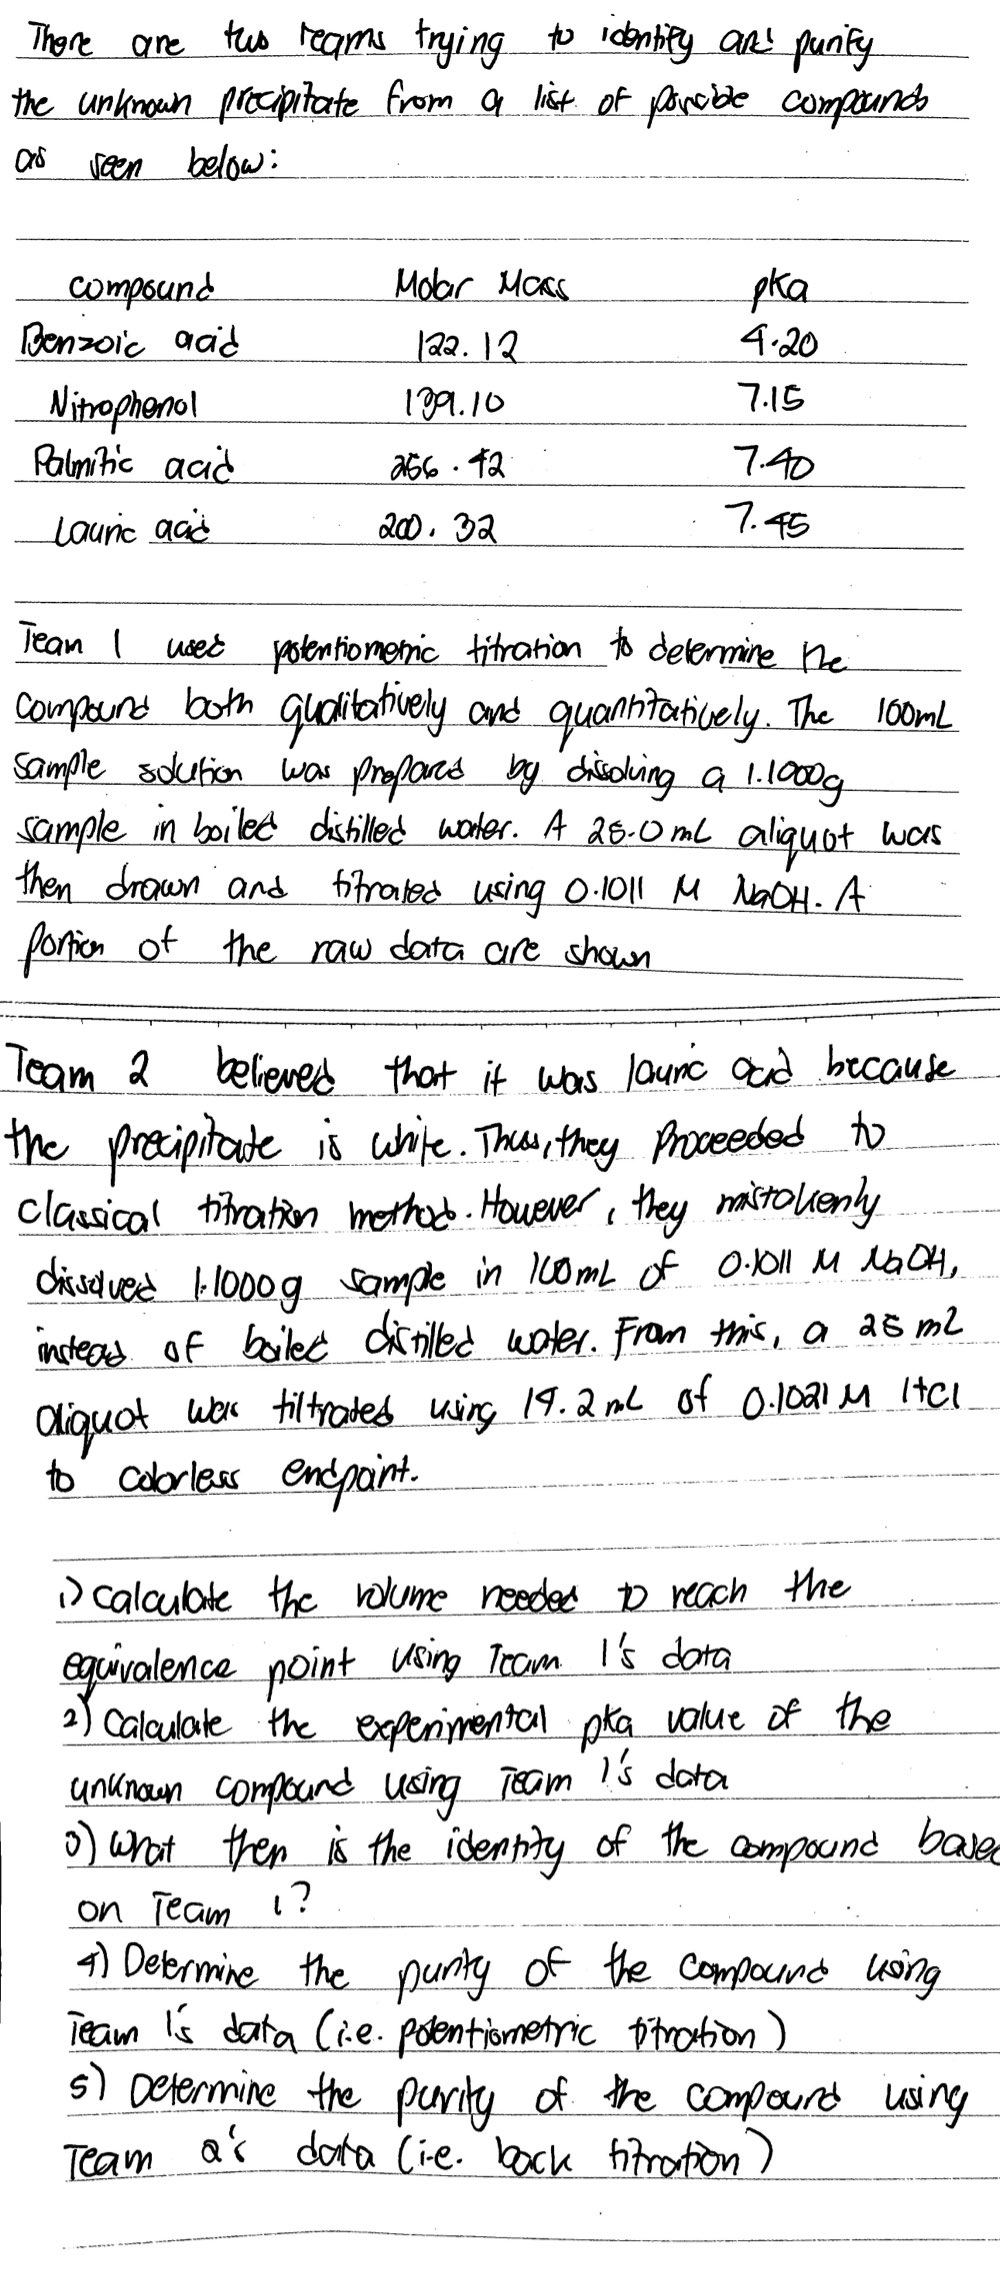 There are two teams trying to identify and purify
the unknown precipitate from a list of possible compounds
as seen below:
compound Molar Mass pKa
Benzoic acid 122.12 4.20
Nitrophenol 139.10 7.15
Palmitic acid 256.42 7.40
Lauric acid 200.32 7.45
Team 1 used potentiometric titration to determine the
compound both qualitatively and quantitatively. The 100mL
sample solution was prepared by dissolving a 1.1000g
sample in boiled distilled water. A 25.0 mL aliquot was
then drawn and titrated using 0.1011 M NaOH. A
portion of the raw data are shown
Team 2 believed that it was lauric acid because
the precipitate is white. Thus, they proceeded to
classical titration method. However, they mistakenly
dissolved 1.1000g sample in 100mL of 0.1011 M NaOH,
instead of boiled distilled water. From this, a 25 mL
aliquot was tiltrated using 14.2 mL of 0.1021 M HCl
to colorless endpoint.
1) calculate the volume needed to reach the
equivalence point using Team 1's data
2) Calculate the experimental pka value of the
unknown compound using Team 1's data
3) What then is the identity of the compound based
on Team 1?
4) Determine the purity of the compound using
Team 1's data (i.e. potentiometric titration)
5) Determine the purity of the compound using
Team 2's data (i.e. back titration)